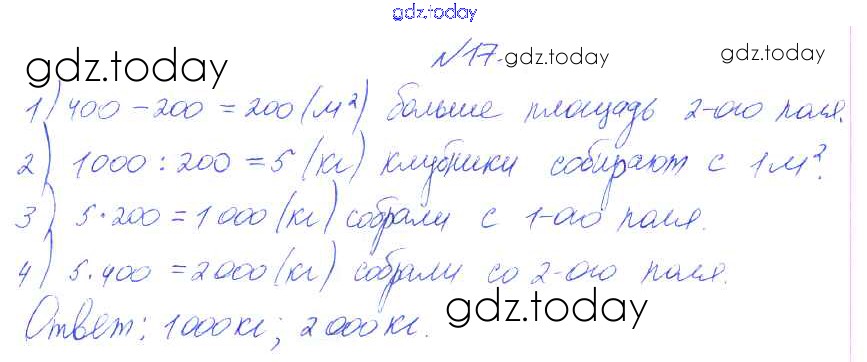 gdz.today
№17. gdz.today gdz.today
gdz.today
1) 400 - 200 = 200 (м²) больше площадь 2-ого поля.
2) 1000 : 200 = 5 (кг) клубники собирают с 1 м².
3) 5 · 200 = 1000 (кг) собрали с 1-ого поля.
4) 5 · 400 = 2000 (кг) собрали со 2-ого поля.
Ответ: 1000 кг; 2000 кг. gdz.today